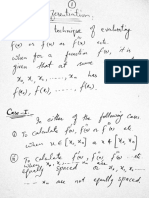 1
technique of evaluating
f'(x) or f''(x) or f'''(x) etc.
when for a function f(x), it is
given that at some
x₀, x₁, x₂, ....., xₙ has
f(x₀), f(x₁), ....., f(xₙ).
Case-I
In either of the following cases
To calculate f'(x), f''(x) or f'''(x) etc
when x ∈ [x₀, xₙ] or x ∉ [x₀, xₙ]
To calculate f'(x), f''(x) etc
when x₀, x₁, ..., xₙ are
equally spaced or x₀, x₁,
... xₙ are not equally spaced.